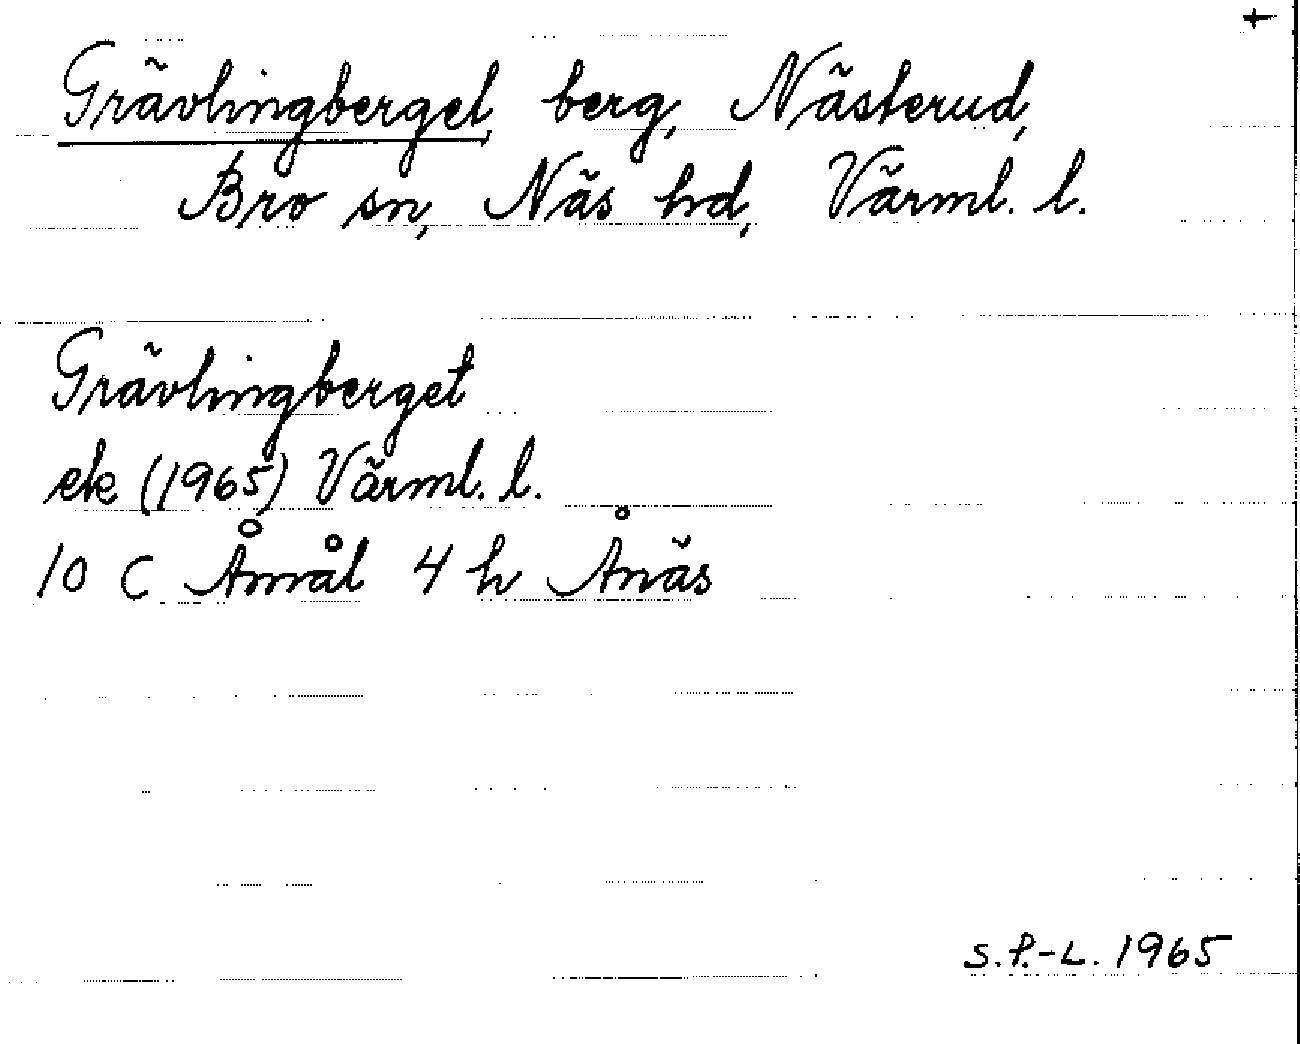 +
Grävlingberget, berg, Nästerud,
Bro sn, Näs hd, Värml. l.
Grävlingberget
ek (1965) Värml. l.
10 C Åmål 4 h Ånäs
S.P.-L. 1965